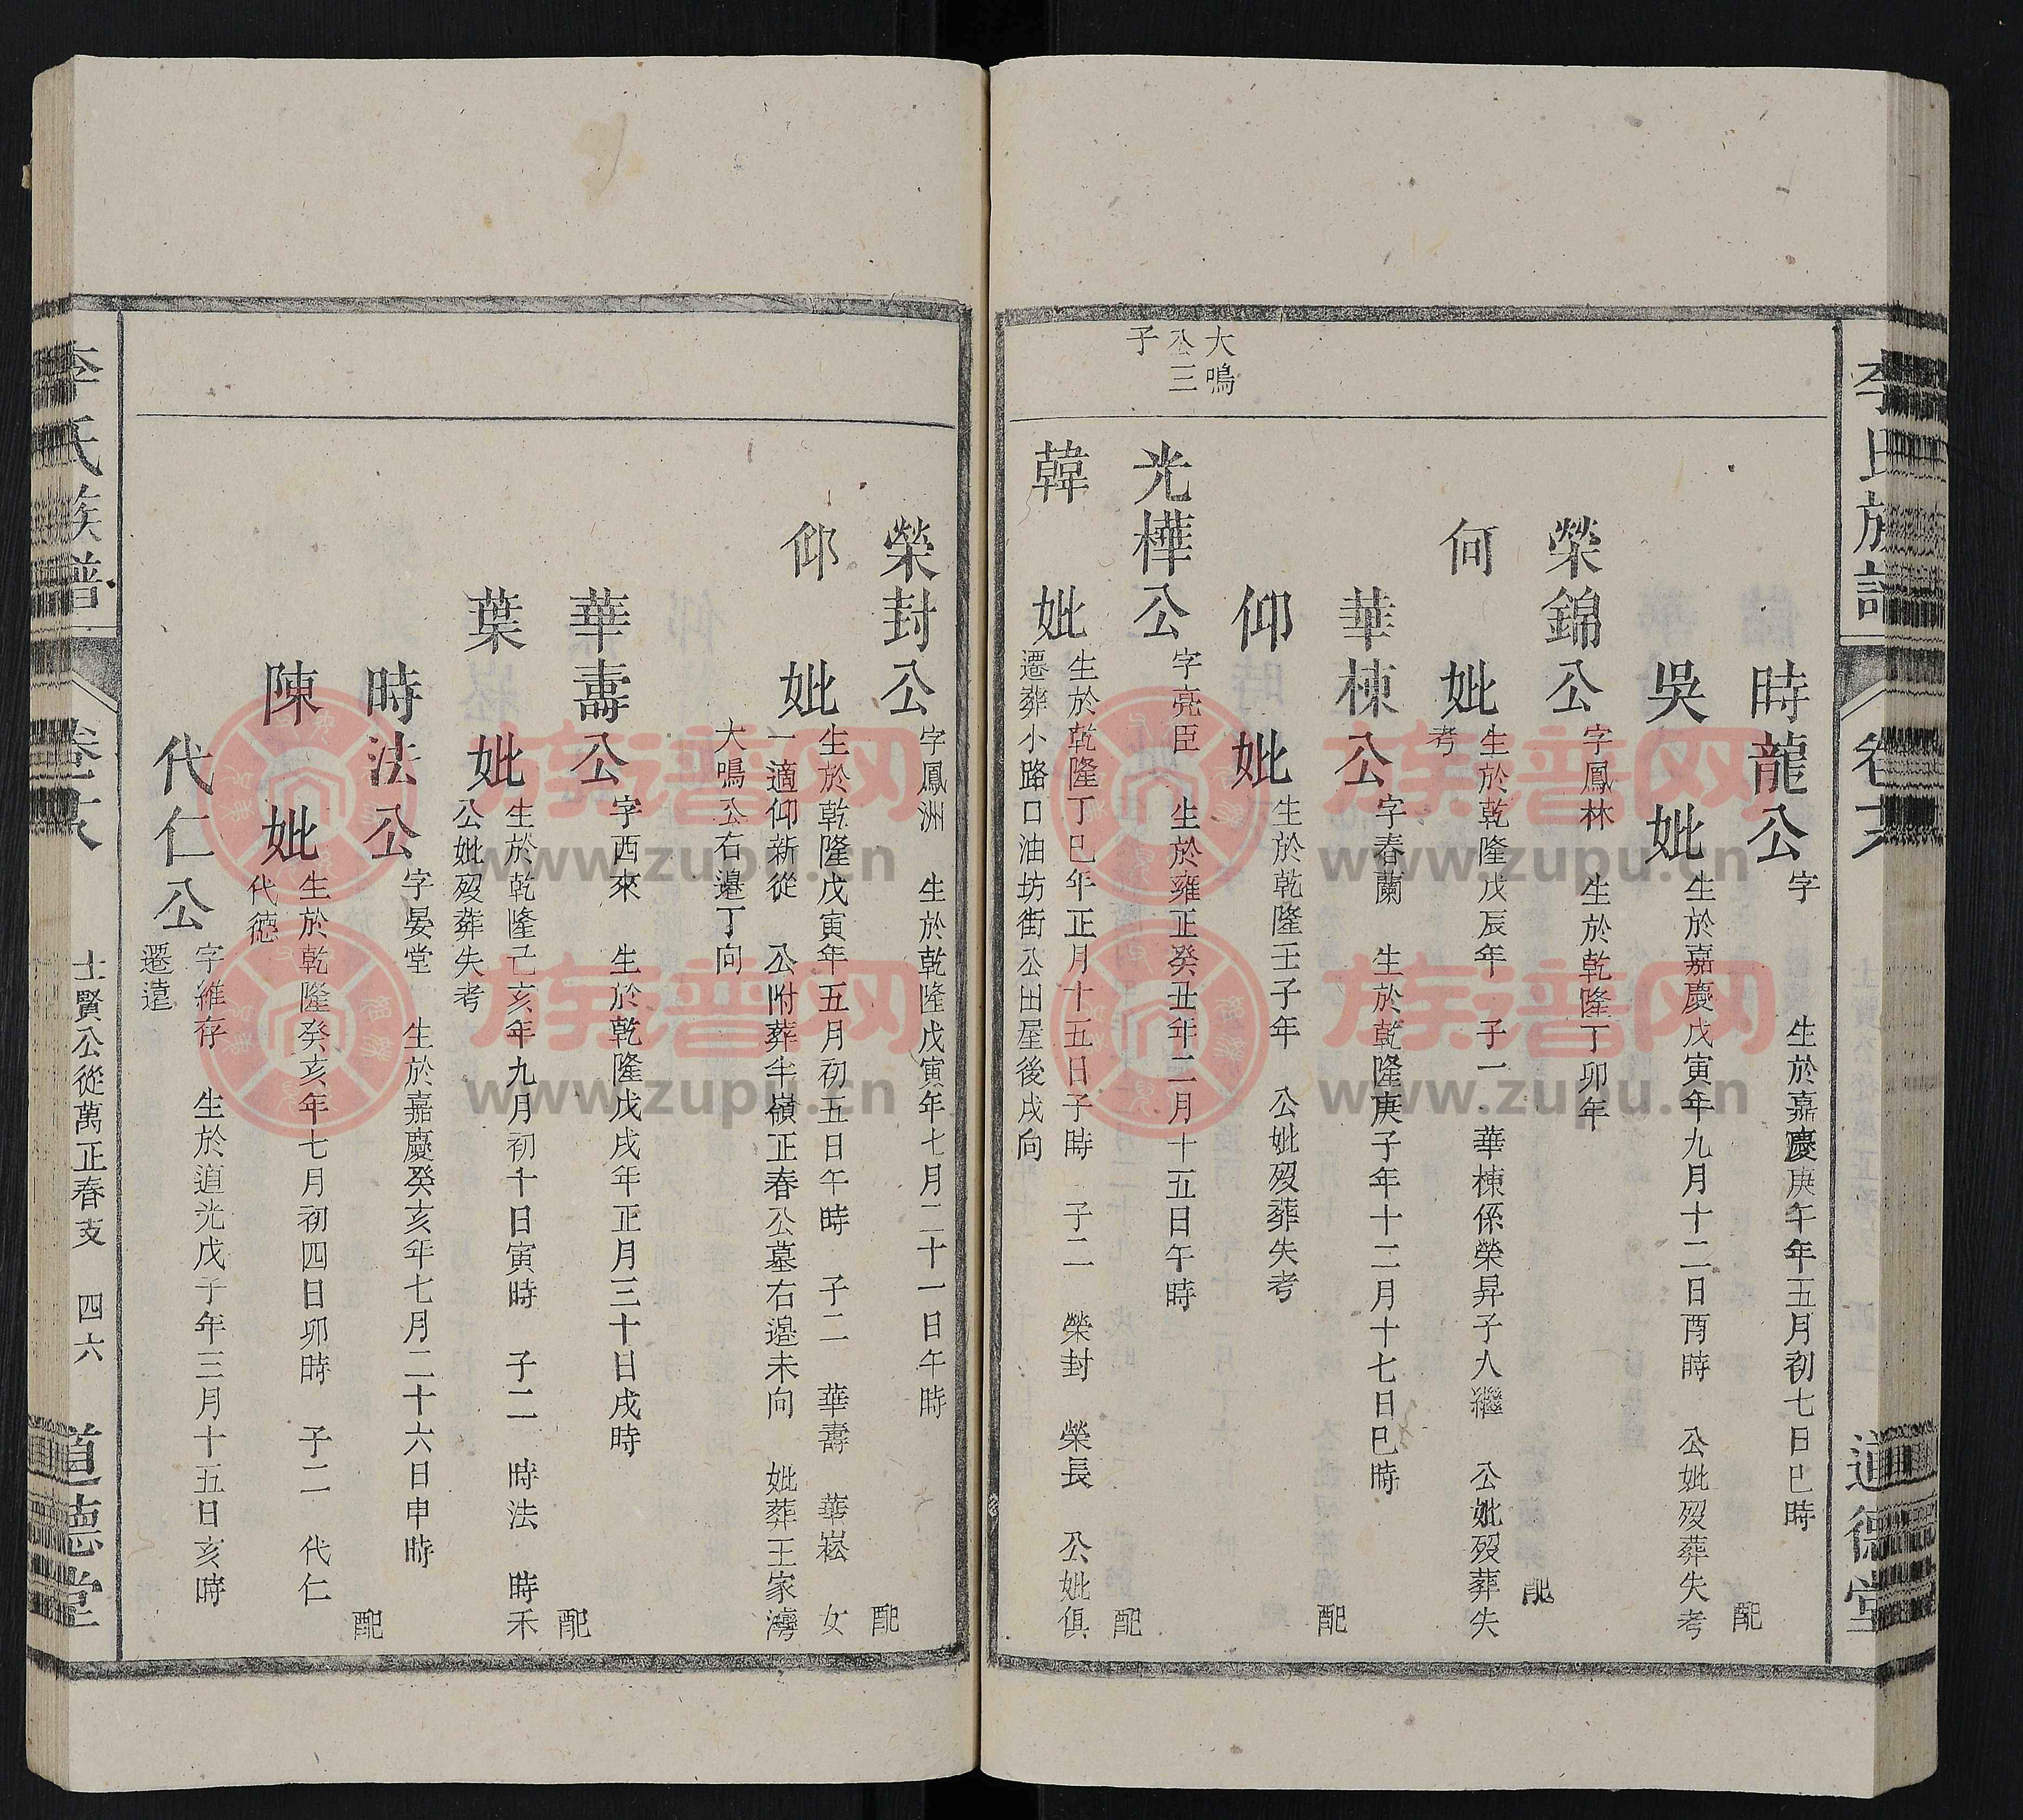 李氏族譜
卷
道德堂
時龍公
字 生於嘉慶庚午年五月初七日巳時 配
吳妣
生於嘉慶戊寅年九月十二日酉時 公妣歿葬失考
榮錦公
字鳳林 生於乾隆丁卯年 配
何妣
生於乾隆戊辰年 子一 華棟係榮昇子入繼 公妣歿葬失
考
華棟公
字春蘭 生於乾隆庚子年十二月十七日巳時 配
仰妣
生於乾隆壬子年 公妣歿葬失考
大鳴
公三
子
光樺公
字亮臣 生於雍正癸丑年二月十五日午時 配
韓妣
生於乾隆丁巳年正月十五日子時 子二 榮封 榮長 公妣俱
遷葬小路口油坊街公田屋後戌向
榮封公
字鳳洲 生於乾隆戊寅年七月二十一日午時 配
仰妣
生於乾隆戊寅年五月初五日午時 子二 華壽 華崧 女
一適仰新從 公附葬牛嶺正春公墓右邊未向 妣葬王家灣
大鳴公右邊丁向
華壽公
字西來 生於乾隆戊戌年正月三十日戌時 配
葉妣
生於乾隆己亥年九月初十日寅時 子二 時法 時禾
公妣歿葬失考
時法公
字晏堂 生於嘉慶癸亥年七月二十六日申時 配
陳妣
生於乾隆癸亥年七月初四日卯時 子二 代仁
代德
代仁公
字維存 生於道光戊子年三月十五日亥時
遷遠
李氏族譜
卷
士賢公從萬正春支 四六
道德堂
族谱网
www.zupu.cn
族谱网
www.zupu.cn
族谱网
www.zupu.cn
族谱网
www.zupu.cn